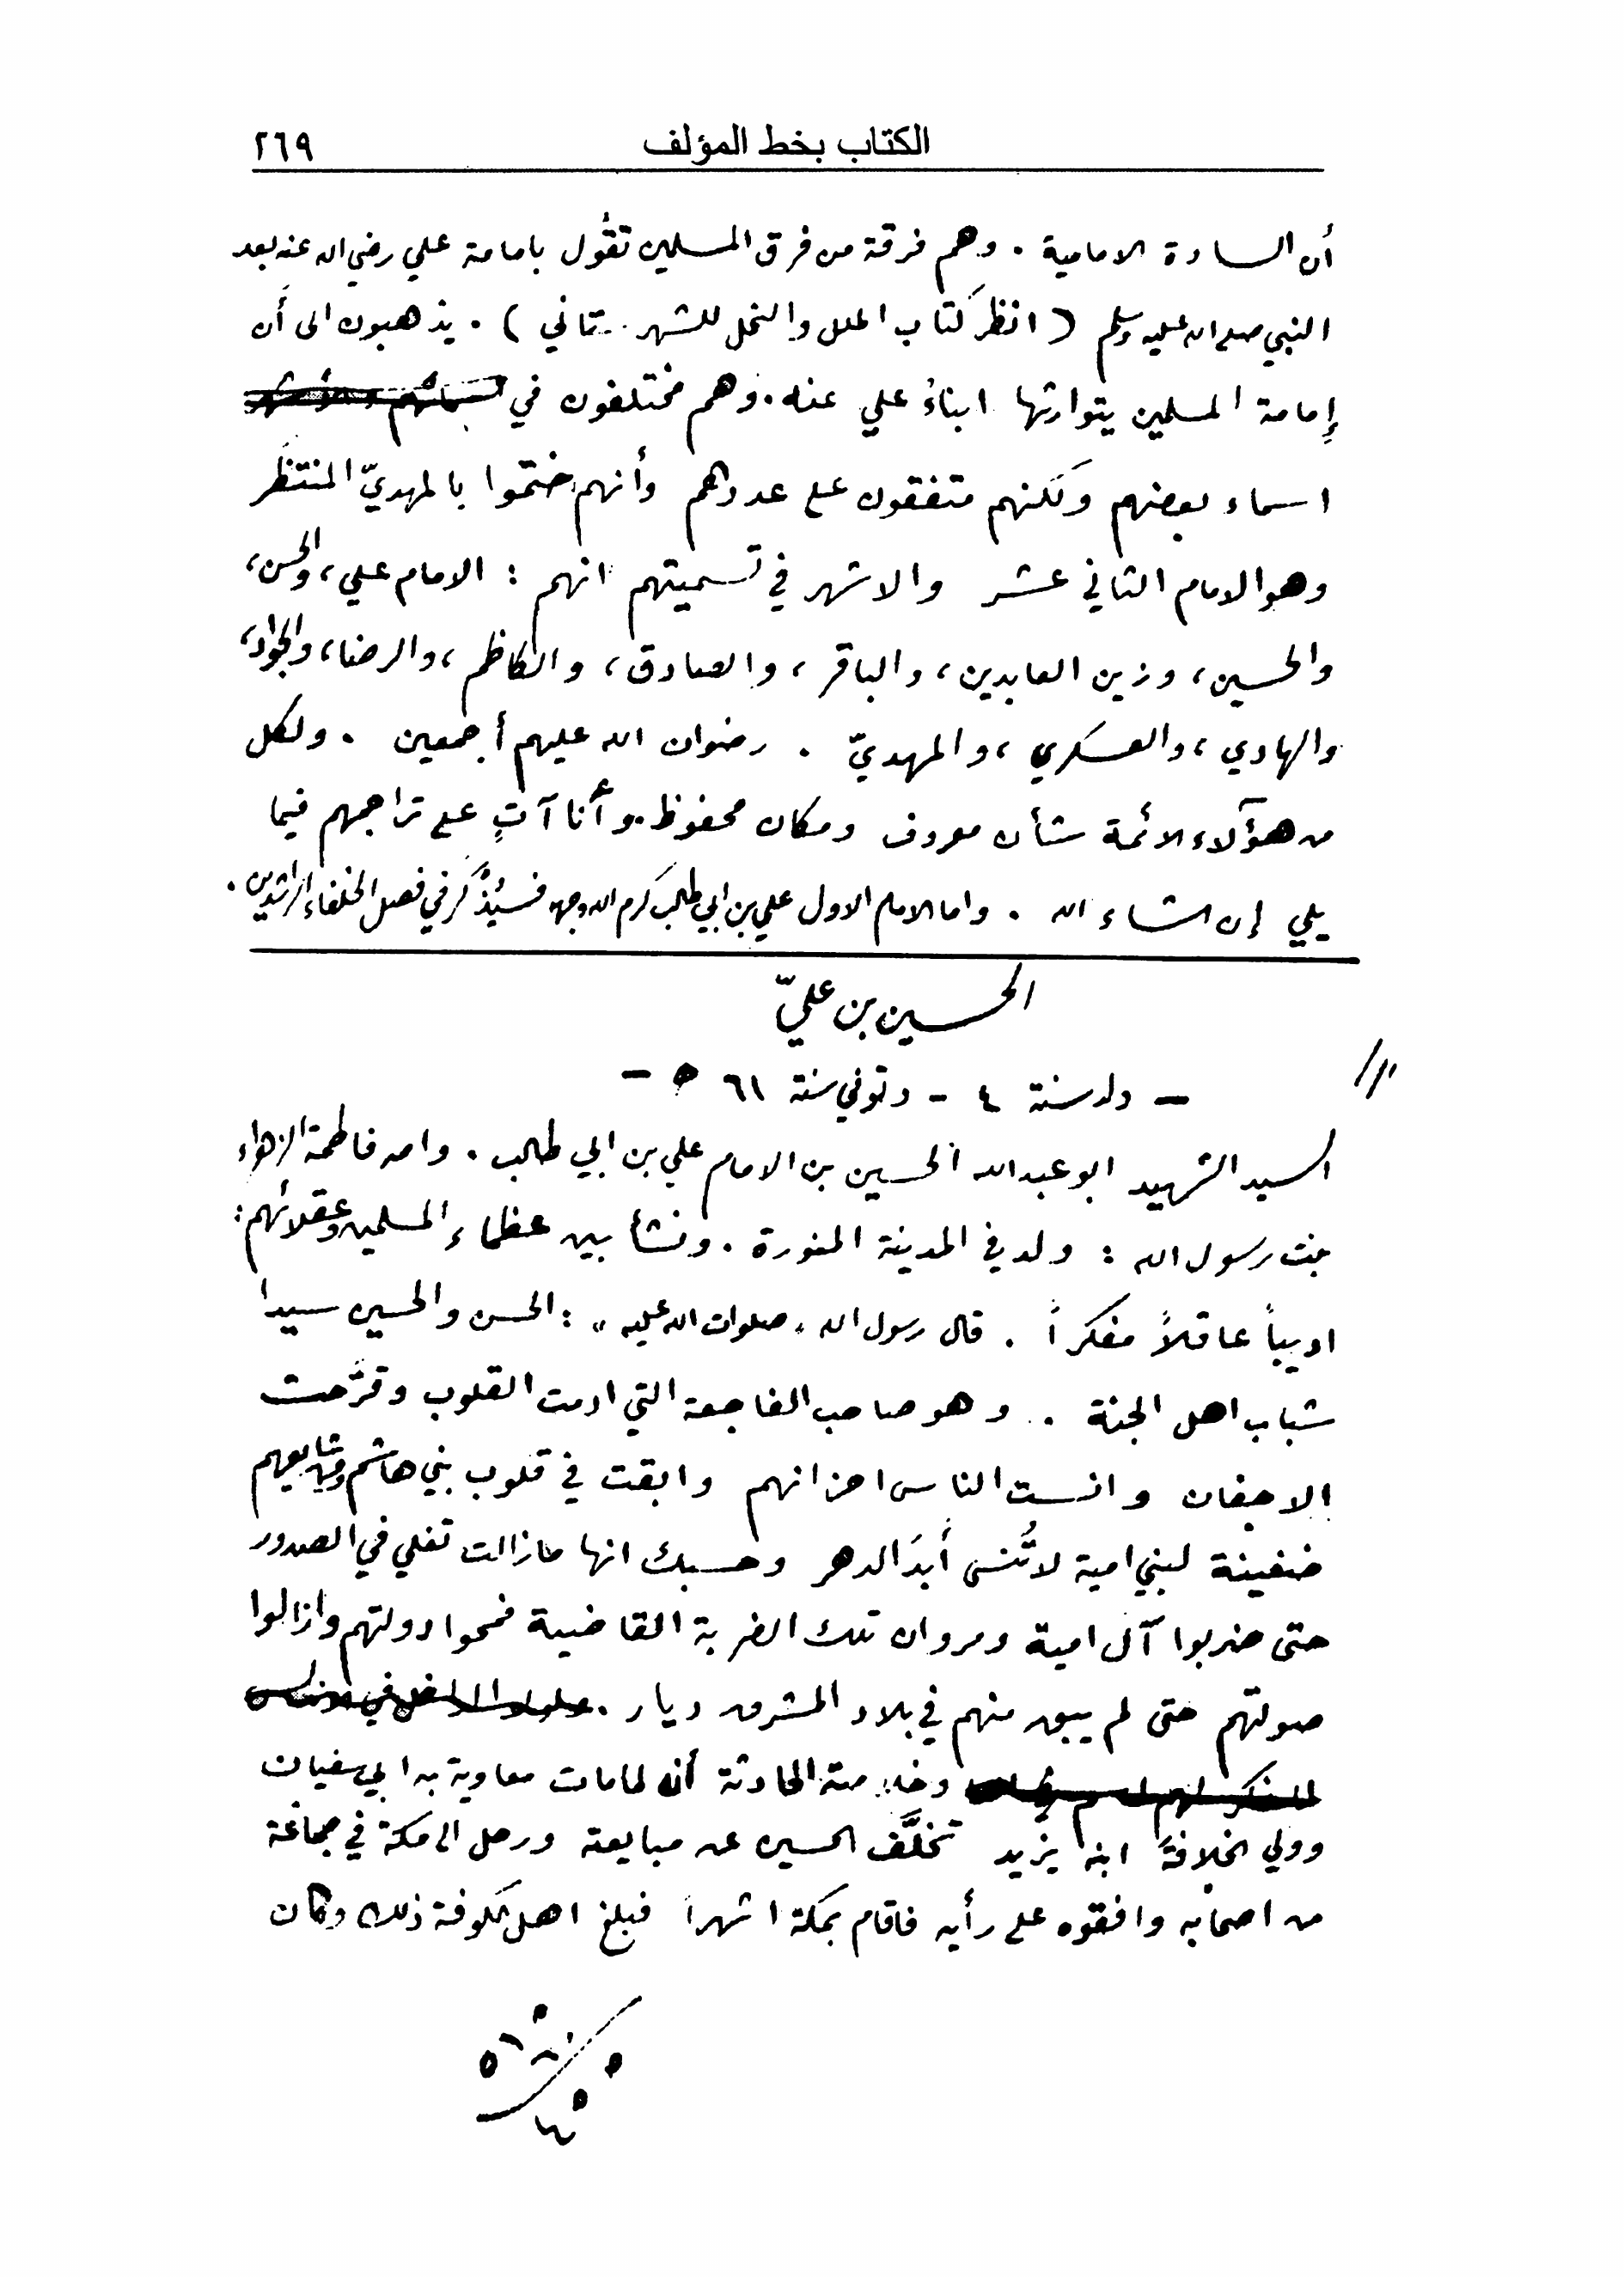 الكتاب بخط المؤلف ٢٦٩
أن السادة الامامية . وهم فرقة من فرق المسلمين تقول بامامة علي رضي الله عنه بعد
النبي صلى الله عليه وسلم ( انظر كتاب الملل والنحل للشهرستاني ) . يذهبون الى أن
إمامة المسلمين يتوارثها ابناءُ علي عنه . وهم مختلفون في
اسماء بعضهم ولكنهم متفقون على عددهم وأنهم ختموا بالمهديّ المنتظَر
وهو الامام الثاني عشر والاشهر في تسميتهم انهم : الامام علي ، والحسن ،
والحسين ، وزين العابدين ، والباقر ، والصادق ، والكاظم ، والرضا ، والجواد ،
والهادي ، والعسكري ، والمهديّ . رضوان الله عليهم أجمعين . ولكل
من هؤلآء الائمة شأن معروف ومكان محفوظ . وأنا آتٍ على تراجمهم فيما
يلي إن شاء الله . واما الامام الاول علي بن ابي طالب كرم الله وجهه فسيُذكر في فصل الخلفاء الراشدين .
الحسين بن عليّ
— ولد سنة ٤ - وتوفي سنة ٦١ ه —
السيد الشهيد ابو عبدالله الحسين بن الامام علي بن ابي طالب . وامه فاطمة الزهراء
بنت رسول الله : ولد في المدينة المنورة . ونشأ بين عظماء المسلمين وعقلائهم :
اديباً عاقلاً مفكراً . قال رسول الله « صلوات الله عليه » : الحسن والحسين سيدا
شباب اهل الجنة . وهو صاحب الفاجعة التي ادمت القلوب وقرَّحت
الاجفان وانست الناس احزانهم وابقت في قلوب بني هاشم ومن شايعهم
ضغينة لبني امية لا تُنسى أبدَ الدهر وحسبك انها مازالت تغلي في الصدور
حتى ضربوا آل امية ومروان تلك الضربة القاضية فمحوا دولتهم وازالوا
صولتهم حتى لم يبق منهم في بلاد المشرق ديار .
وخلاصة الحادثة أنه لما مات معاوية بن ابي سفيان
وولي الخلافةَ ابنه يزيد تخلَّف الحسين عن مبايعته ورحل الى مكة في جماعة
من اصحابه وافقوه على رأيه فاقام بمكة اشهراً فبلغ اهل الكوفة ذلك وكان